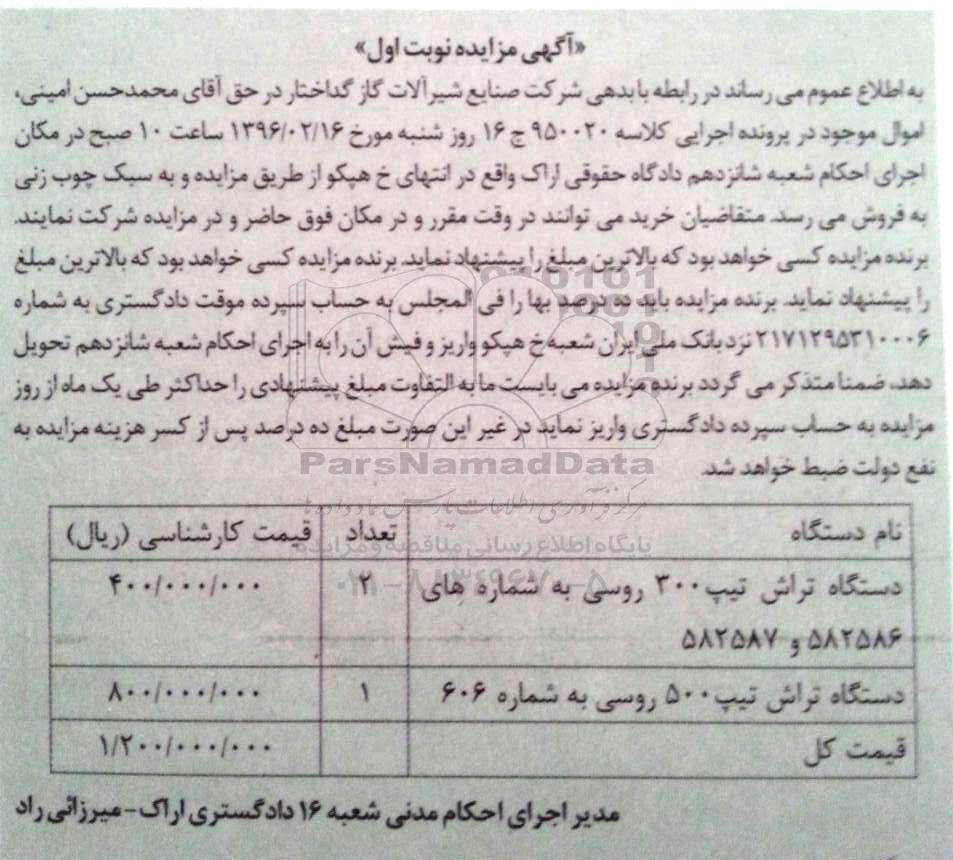 «آگهی مزایده نوبت اول»
به اطلاع عموم می رساند در رابطه با بدهی شرکت صنایع شیرآلات گاز گداختار در حق آقای محمدحسن امینی،
اموال موجود در پرونده اجرایی کلاسه ۹۵۰۰۲۰ ج ۱۶ روز شنبه مورخ ۱۳۹۶/۰۲/۱۶ ساعت ۱۰ صبح در مکان
اجرای احکام شعبه شانزدهم دادگاه حقوقی اراک واقع در انتهای خ هپکو از طریق مزایده و به سبک چوب زنی
به فروش می رسد. متقاضیان خرید می توانند در وقت مقرر و در مکان فوق حاضر و در مزایده شرکت نمایند.
برنده مزایده کسی خواهد بود که بالاترین مبلغ را پیشنهاد نماید. برنده مزایده کسی خواهد بود که بالاترین مبلغ
را پیشنهاد نماید. برنده مزایده باید ده درصد بها را فی المجلس به حساب سپرده موقت دادگستری به شماره
۲۱۷۱۲۹۵۳۱۰۰۰۶ نزد بانک ملی ایران شعبه خ هپکو واریز و فیش آن را به اجرای احکام شعبه شانزدهم تحویل
دهد، ضمنا متذکر می گردد برنده مزایده می بایست ما به التفاوت مبلغ پیشنهادی را حداکثر طی یک ماه از روز
مزایده به حساب سپرده دادگستری واریز نماید در غیر این صورت مبلغ ده درصد پس از کسر هزینه مزایده به
نفع دولت ضبط خواهد شد.
ParsNamadData
مرکز فرآوری اطلاعات پارس نماد داده ها
پایگاه اطلاع رسانی مناقصه و مزایده
۰۲۱-۸۸۳۴۹۶۷۰-۵
نام دستگاه تعداد قیمت کارشناسی (ریال)
دستگاه تراش تیپ ۳۰۰ روسی به شماره های ۲ ۴۰۰/۰۰۰/۰۰۰
۵۸۲۵۸۶ و ۵۸۲۵۸۷
دستگاه تراش تیپ ۵۰۰ روسی به شماره ۶۰۶ ۱ ۸۰۰/۰۰۰/۰۰۰
قیمت کل ۱/۲۰۰/۰۰۰/۰۰۰
مدیر اجرای احکام مدنی شعبه ۱۶ دادگستری اراک - میرزائی راد